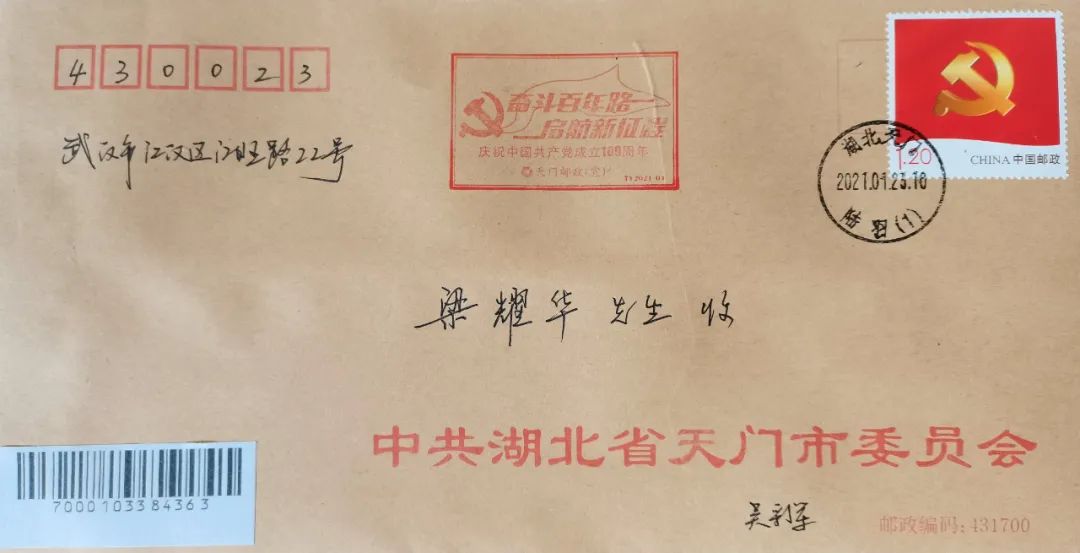 430023
武汉市江汉区江旺路22号
奋斗百年路
启航新征程
庆祝中国共产党成立100周年
天门邮政(宣)
TY2021-01
1.20
CHINA 中国邮政
湖北天门
2021.01.23.16
(1)
梁耀华 先生 收
中共湖北省天门市委员会
7000103384363
邮政编码:431700